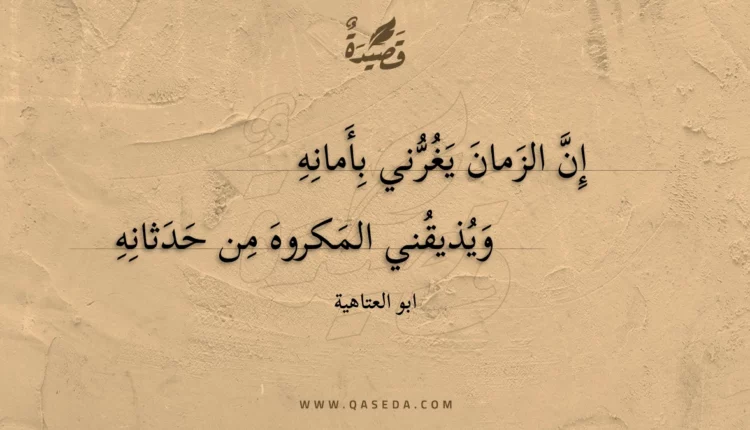 قَصِيدَةٌ
إِنَّ الزَمانَ يَغُرُّني بِأَمانِهِ
وَيُذيقُني المَكروهَ مِن حَدَثانِهِ
ابو العتاهية
WWW.QASEDA.COM